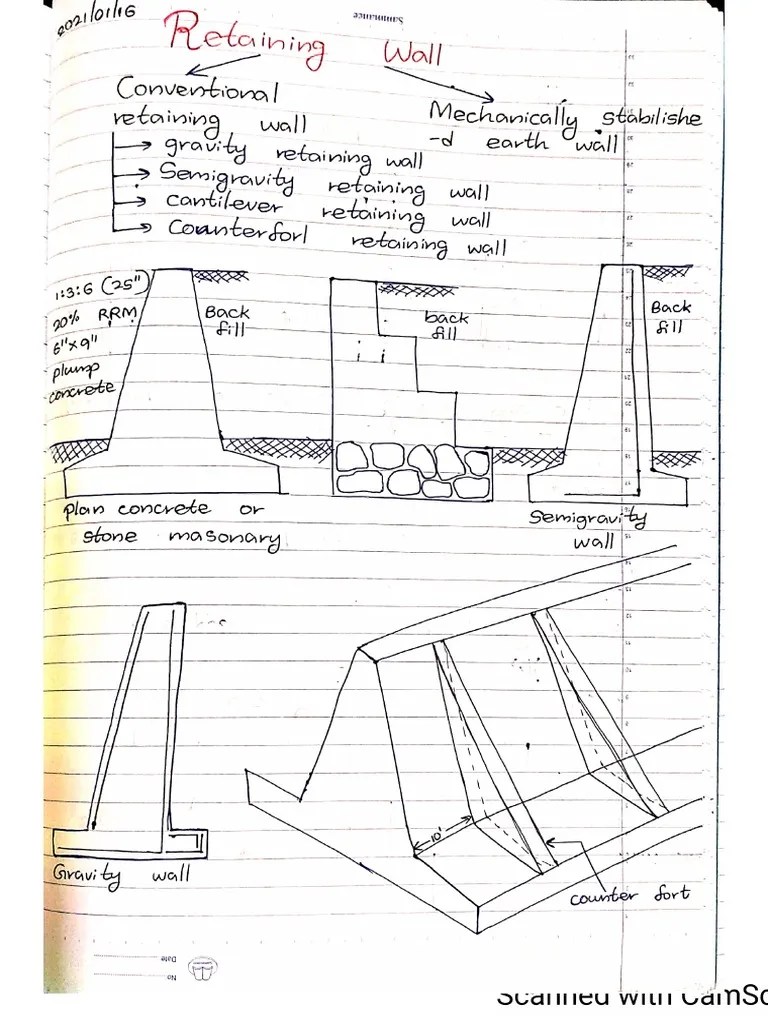 2021/01/16
Retaining Wall
Conventional
retaining wall
Mechanically stabilishe
-d earth wall
gravity retaining wall
Semigravity retaining wall
cantilever retaining wall
Counterforl retaining wall
1:3:6 (25")
20% RRM
6"x9"
plump
concrete
Back
fill
back
fill
Back
fill
plan concrete or
stone masonary
Semigravity
wall
10'
Gravity wall
counter fort
Date
No
Scanned with CamSc